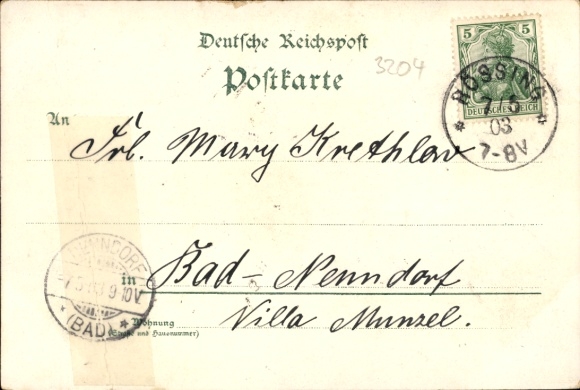 Deutsche Reichspost
Postkarte
3204
5 5
DEUTSCHES REICH
* RÖSSING *
7/5
03
7-8V
An
Frl. Mary Krethlow
NENNDORF
9-10V
* (BAD) *
in Bad-Nenndorf
Wohnung
(Straße und Hausnummer)
Villa Munzel.